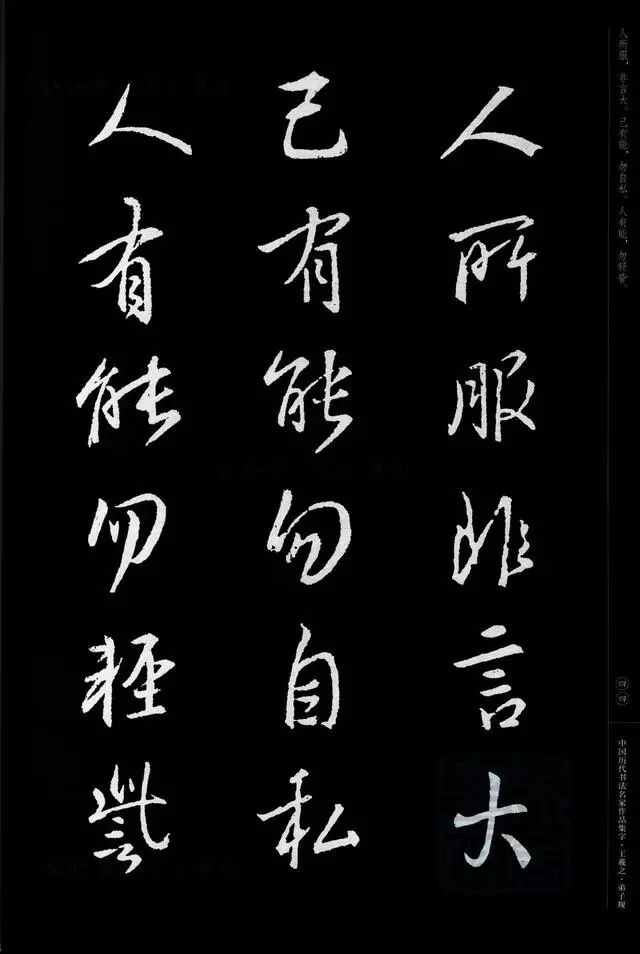 人所服，非言大。己有能，勿自私。人有能，勿轻訾。
人所服非言大
己有能勿自私
人有能勿輕訾
四四
中国历代书法名家作品集字·王羲之·弟子规